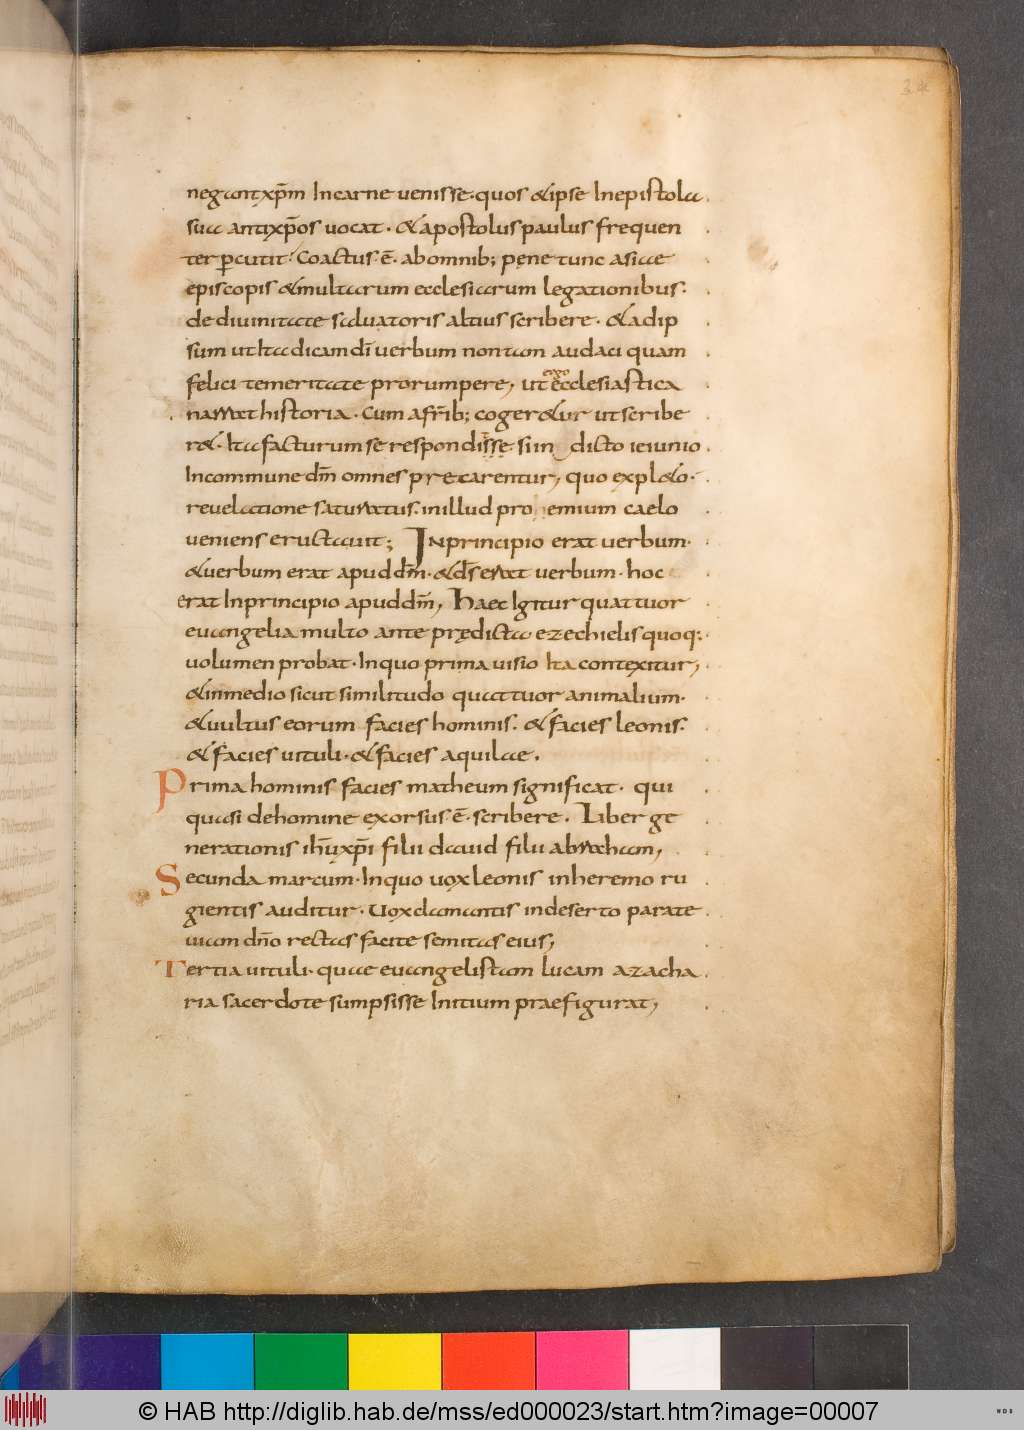 3.4
negant xp̄m In carne uenisse · quos & ipse In epistola
sua antixp̄os uocat · & apostolus paulus frequen
ter p̄cutit · Coactus ē · ab omnib; pęne tunc asiae
episcopis & multarum ecclesiarum legationibus ·
de diuinitate saluatoris altius scribere · & ad ip
sum ut Ita dicam dī uerbum non tam audaci quam
felici temeritate prorumpere, ut ecclesiastica
narrat historia · Cum a fr̄ib; coger&ur ut scribe
r& · Ita facturum se respondisse · si indicto ieiunio
In commune dm̄ omnes precarentur, quo expl&o ·
reuelatione saturatus · in illud prohemium caelo
ueniens eructauit; In principio erat uerbum ·
& uerbum erat apud dm̄ · & ds̄ erat uerbum · hoc
erat In principio apud dm̄, Haec Igitur quattuor
euangelia multo ante prędicta ezechielis quoq:
uolumen probat · In quo prima uisio Ita contexitur,
& in medio sicut similitudo quattuor animalium ·
& uultus eorum facies hominis · & facies leonis ·
& facies uituli · & facies aquilae ·
Prima hominis facies matheum significat · qui
quasi de homine exorsus ē · scribere · Liber ge
nerationis ihū xp̄i filii dauid filii abraham,
Secunda marcum · In quo uox leonis in heremo ru
gientis auditur · Uox clamantis in deserto parate
uiam dn̄o rectas facite semitas eius,
Tertia uituli · quae euangelistam lucam a zacha
ria sacerdote sumpsisse Initium praefigurat,
© HAB http://diglib.hab.de/mss/ed000023/start.htm?image=00007